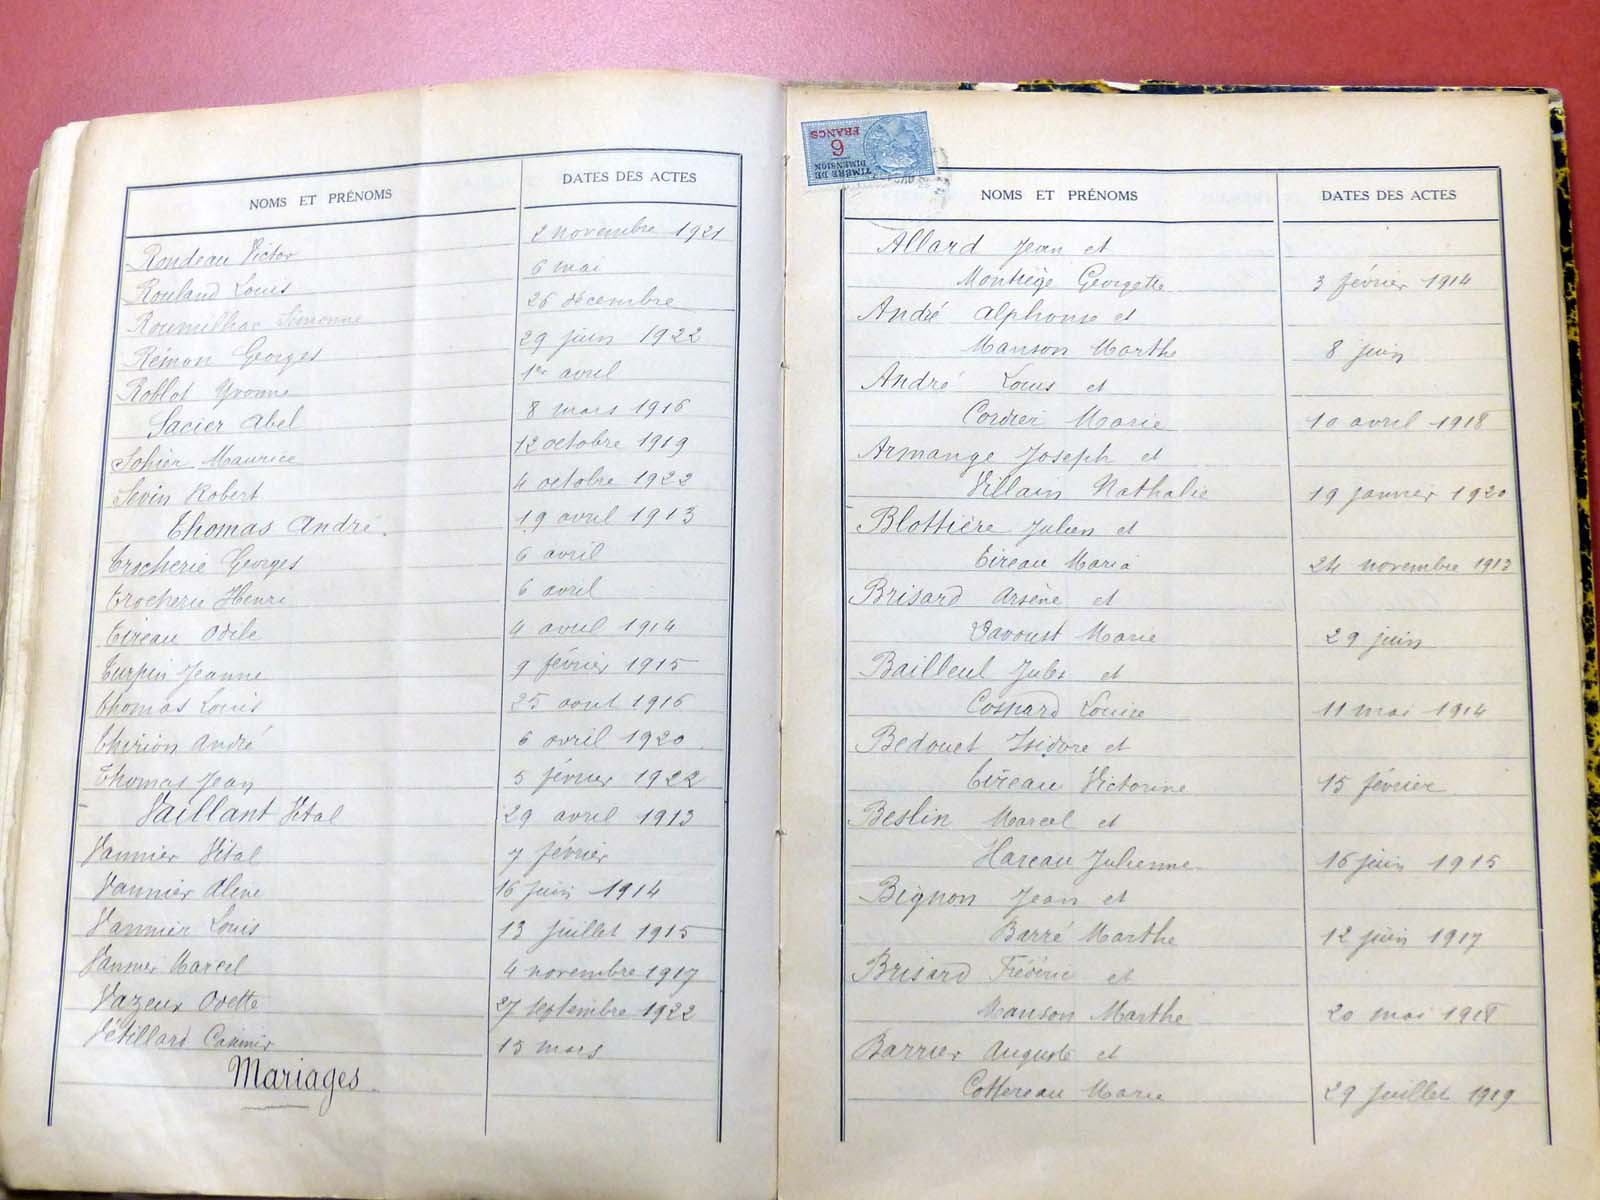 NOMS ET PRÉNOMS DATES DES ACTES
Rondeau Victor 2 novembre 1921
Rouland Louis 6 mai
Roumilhac Simonne 26 décembre
Rémon Georges 29 juin 1922
Roblot Yvonne 1er avril
Sacier Abel 8 mars 1916
Sohier Maurice 12 octobre 1919
Sevin Robert 4 octobre 1922
Thomas André 19 avril 1913
Trocherie Georges 6 avril
Trocherie Henri 6 avril
Tireau Odile 4 avril 1914
Turpin Jeanne 9 février 1915
Thomas Louis 25 août 1916
Thirion André 6 avril 1920
Thomas Jean 5 février 1922
Vaillant Vital 29 avril 1913
Vannier Vital 7 février
Vannier Aline 16 juin 1914
Vannier Louis 13 juillet 1915
Vannier Marcel 4 novembre 1917
Vazeux Odette 27 septembre 1922
Vétillard Casimir 15 mars
Mariages
TIMBRE DE
DIMENSION
6
FRANCS
NOMS ET PRÉNOMS DATES DES ACTES
Allard Jean et
Montiège Georgette 3 février 1914
André Alphonse et
Manson Marthe 8 juin
André Louis et
Cordier Marie 10 avril 1918
Armange Joseph et
Villain Nathalie 19 janvier 1920
Blottière Julien et
Tireau Maria 24 novembre 1913
Brisard Arsène et
Davoust Marie 29 juin
Bailleul Jules et
Cosnard Louise 11 mai 1914
Bedouet Isidore et
Tireau Victorine 15 février
Beslin Marcel et
Hareau Julienne 16 juin 1915
Bignon Jean et
Barré Marthe 12 juin 1917
Brisard Frédéric et
Manson Marthe 20 mai 1918
Barrier Auguste et
Cottereau Marie 29 juillet 1919